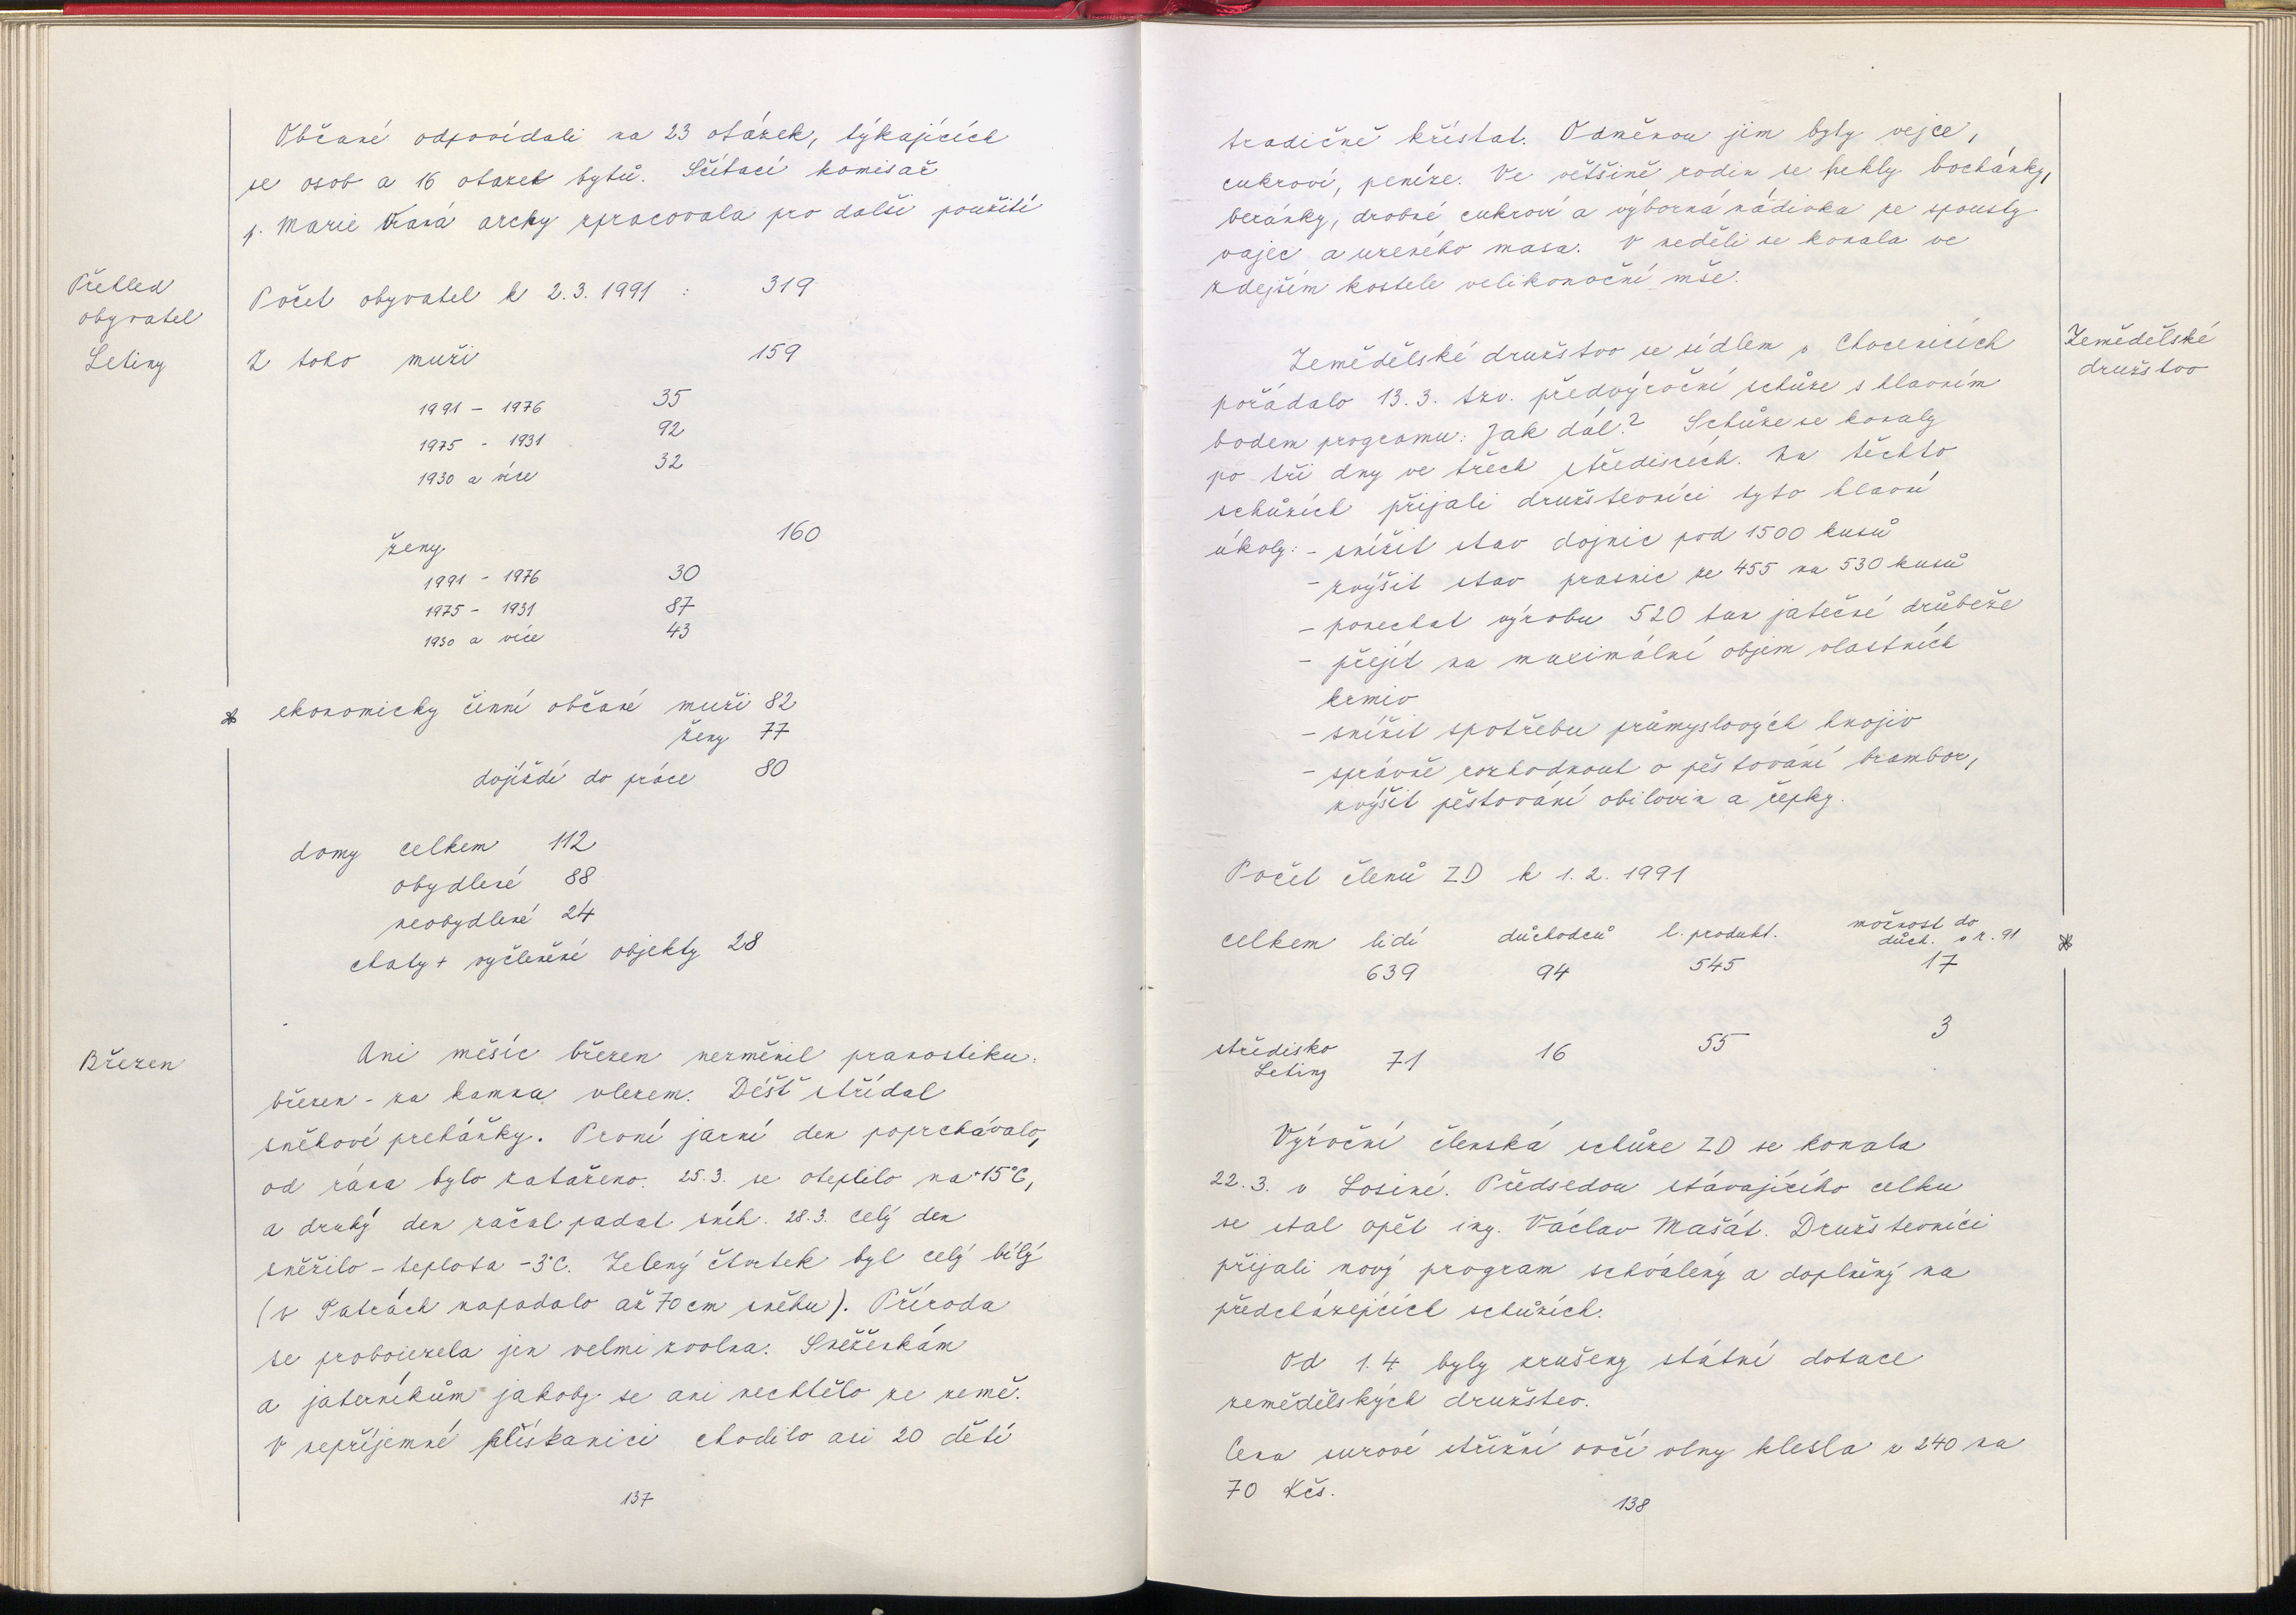 Občané odpovídali na 23 otázek, týkajících
se osob a 16 otázek bytů. Sčítací komisař
p. Marie Vraná archy zpracovala pro další použití
Přehled
obyvatel
Letiny
Počet obyvatel k 2.3.1991 : 319
Z toho muži 159
1991 - 1976 35
1975 - 1931 92
1930 a více 32
ženy 160
1991 - 1976 30
1975 - 1931 87
1930 a více 43
ekonomicky činní občané muži 82
ženy 77
dojíždí do práce 80
domy celkem 112
obydlené 88
neobydlené 24
chaty + vyčleněné objekty 28
Březen
Ani měsíc březen nezměnil pranostiku:
březen - za kamna vlezem. Déšť střídal
sněhové prěháňky. První jarní den poprchávalo,
od rána bylo zataženo. 25.3. se oteplilo na +15°C,
a druhý den začal padat sníh. 28.3. celý den
sněžilo - teplota -3°C. Zelený čtvrtek byl celý bílý
(v Tatrách napadalo až 70 cm sněhu). Příroda
se probouzela jen velmi zvolna. Sněženkám
a jaterníkům jakoby se ani nechtělo ze země.
V nepříjemné plískanici chodilo asi 20 dětí
137
tradičně křístat. Odměnou jim byly vejce,
cukroví, peníze. Ve většině rodin se pekly bochánky,
beránky, drobné cukroví a výborná nádivka ze spousty
vajec a uzeného masa. V neděli se konala ve
zdejším kostele velikonoční mše.
Zemědělské
družstvo
Zemědělské družstvo se sídlem v Chocenicích
pořádalo 13.3. tzv. předvýroční schůze s hlavním
bodem programu: Jak dál? Schůze se konaly
po tři dny ve třech střediscích. Na těchto
schůzích přijali družstevníci tyto hlavní
úkoly: - snížit stav dojnic pod 1500 kusů
- zvýšit stav prasnic ze 455 na 530 kusů
- ponechat výrobu 520 tun jatečné drůbeže
- přejít na maximální objem vlastních
krmiv
- snížit spotřebu průmyslových hnojiv
- správně rozhodnout o pěstování brambor,
zvýšit pěstování obilovin a řepky.
Počet členů ZD k 1.2.1991
celkem lidí důchodců l. produkt. možnost do
důch. v r. 91
639 94 545 17
středisko
Letiny 71 16 55 3
Výroční členská schůze ZD se konala
22.3. v Losiné. Předsedou stávajícího celku
se stal opět ing. Václav Mašát. Družstevníci
přijali nový program schválený a doplněný na
předcházejících schůzích.
Od 1.4. byly zrušeny státní dotace
zemědělských družstev.
Cena surové střižní ovčí vlny klesla z 240 na
70 Kčs.
138